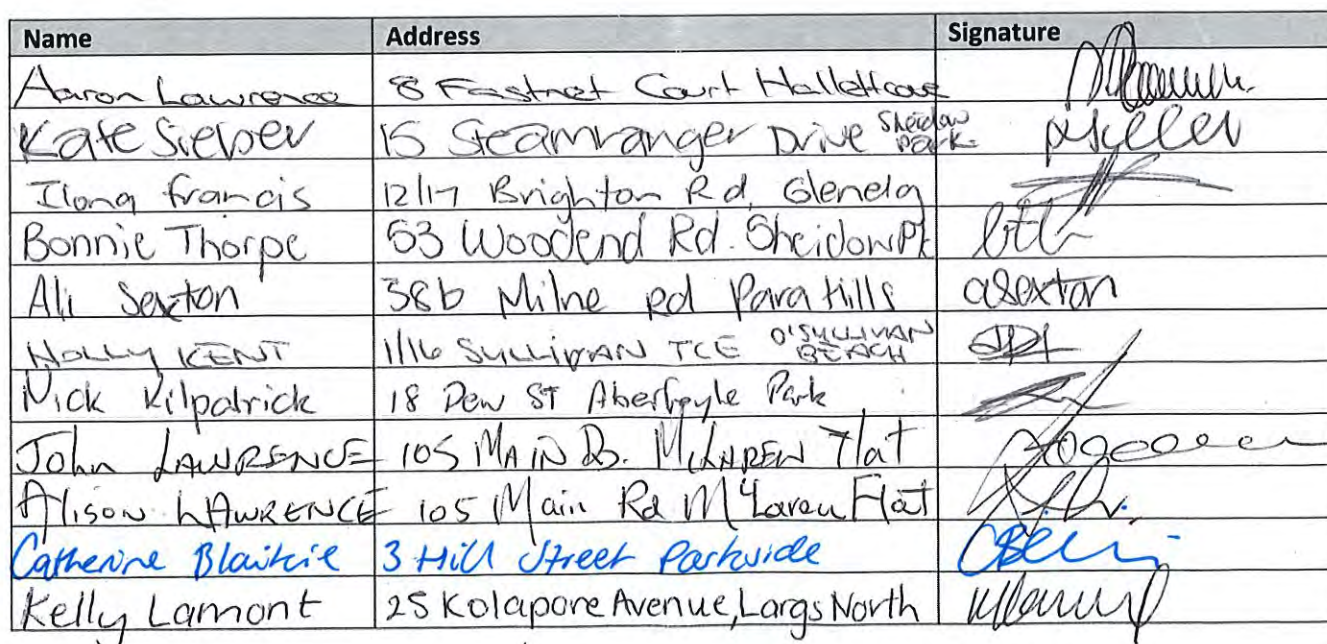 Name Address Signature
Aaron Lawrence 8 Fastnet Court Hallettcove
Kate Sieber 15 Steamranger Drive Sheidow Park
Ilona francis 12/17 Brighton Rd, Glenelg
Bonnie Thorpe 53 Woodend Rd. SheidowPk
Ali Sexton 38b Milne Rd Para Hills asexton
HOLLY KENT 1/16 SULLIVAN TCE O'SULLIVAN BEACH
Nick Kilpatrick 18 Dew ST Aberfoyle Park
John LAWRENCE 105 MAIN RD. McLAREN Flat
Alison LAWRENCE 105 Main Rd McLaren Flat
Catherine Blaikie 3 Hill Street Parkside
Kelly Lamont 25 Kolapore Avenue, Largs North